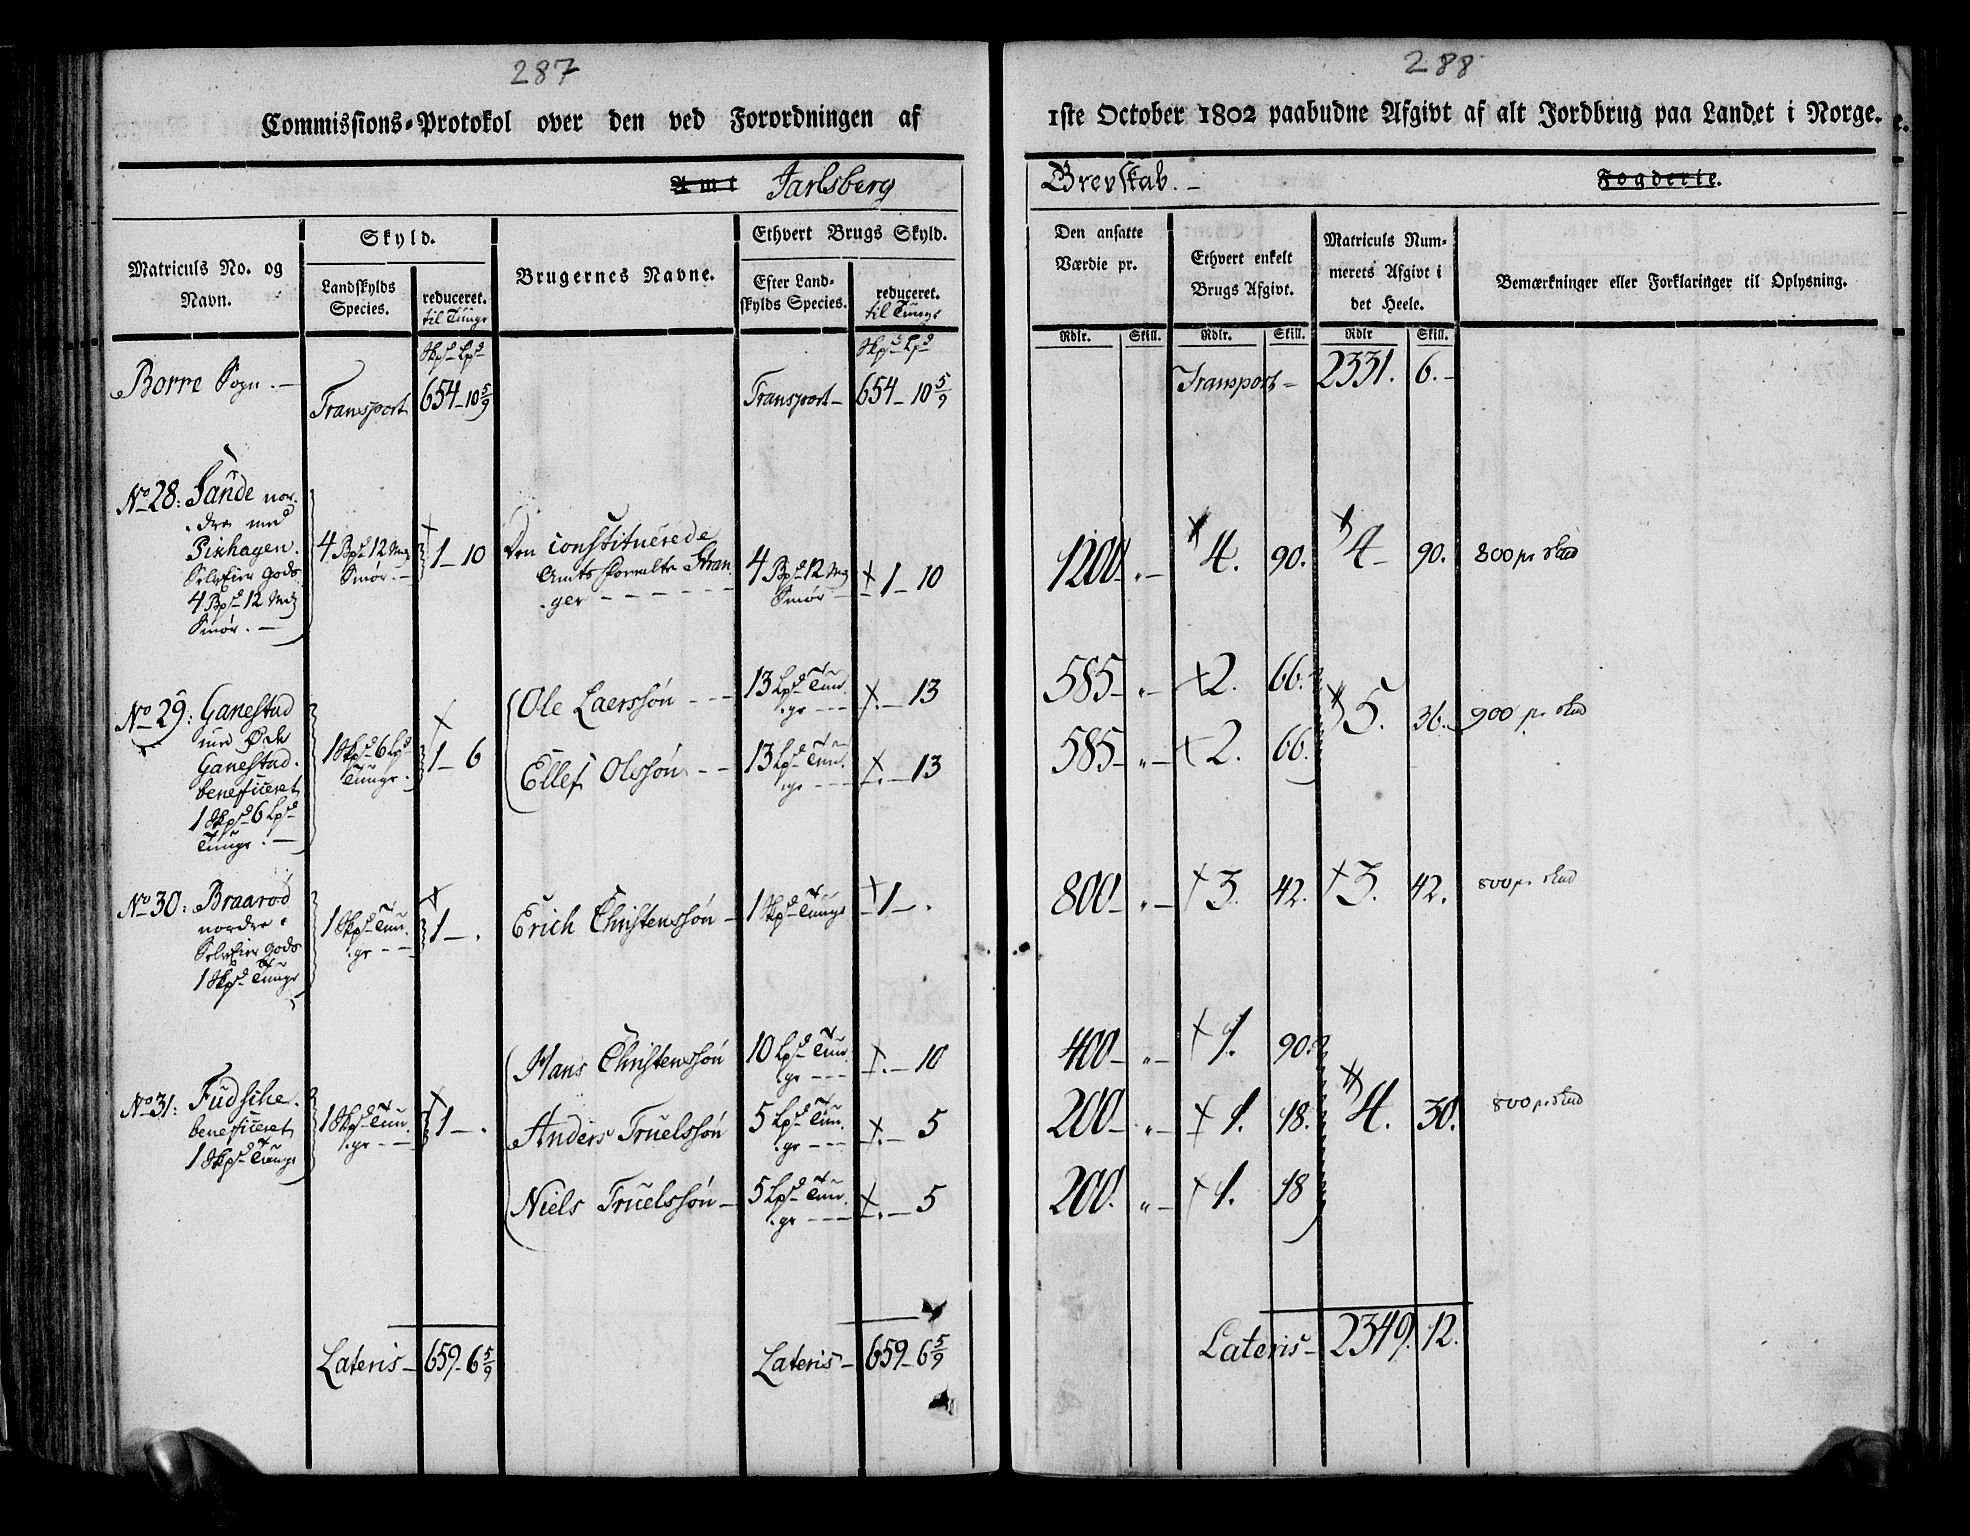 287
Commissions-Protokol over den ved Forordningen af
Amt Jarlsberg
Matriculs No. og
Navn.
Skyld.
Landskylds
Species.
reduceret.
til Tunge
Brugernes Navne.
Ethvert Brugs Skyld.
Efter Land-
skylds Species.
reduceret.
til Tunge
Skpd Lpd
Skpd Lpd
Borre Sogn.
Transport
654 – 10 5/9
Transport –
654 – 10 5/9
No 28: Sande nor-
dre med
Pixhagen.
Selveier Gods
4 Bpd 12 Mrk
Smør. –
4 Bpd 12 Mrk
Smør. –
1 – 10
Den constituerede
Amtsforvalter Stran
ger – – – – – –
4 Bpd 12 Mrk
Smør –
1 – 10
No 29: Ganestad
med Øde
Ganestad.
beneficeret
1 Skpd 6 Lpd
Tunge. –
1 Skpd 6 Lpd
Tunge.
1 – 6
Ole Laerssøn – – –
13 Lpd Tun-
ge – – –
. – 13
Ellef Olssøn – –
13 Lpd Tun-
ge – – –
. – 13
No 30: Braarød
nordre
Selveier Gods
1 Skpd Tunge
1 Skpd Tun-
ge – –
1 – .
Erich Christenssøn –
1 Skpd Tunge
1 – .
No 31: Fudsche.
beneficeret
1 Skpd Tunge
1 Skpd Tun-
ge – –
1 – .
Hans Christenssøn
10 Lpd Tun-
ge – – –
. – 10
Anders Truelssøn
5 Lpd Tun-
ge – – –
. – 5
Niels Truelssøn –
5 Lpd Tun-
ge – – –
. – 5
Lateris – 659 – 6 5/9
Lateris – 659 – 6 5/9
288
1ste October 1802 paabudne Afgivt af alt Jordbrug paa Landet i Norge.
Grevskab. – Fogderie.
Den ansatte
Værdie pr.
Ethvert enkelt
Brugs Afgivt.
Matriculs Num-
merets Afgivt i
det Heele.
Bemærkninger eller Forklaringer til Oplysning.
Rdlr. Skill. Rdlr. Skill. Rdlr Skill.
Transport – 2331. 6. –
1200 „ – 4. 90. 4 – 90. 800 pr Skd
585 – „ – 2. 66.
5. 36. 900 pr Skd
585 – „ – 2. 66.
800 – „ – 3. 42. 3. 42. 800 pr Skd
400 – „ – 1. 90.
200 – „ – 1. 18. 4. 30. 800 pr Skd
200. „ – 1. 18
Lateris – 2349. 12.